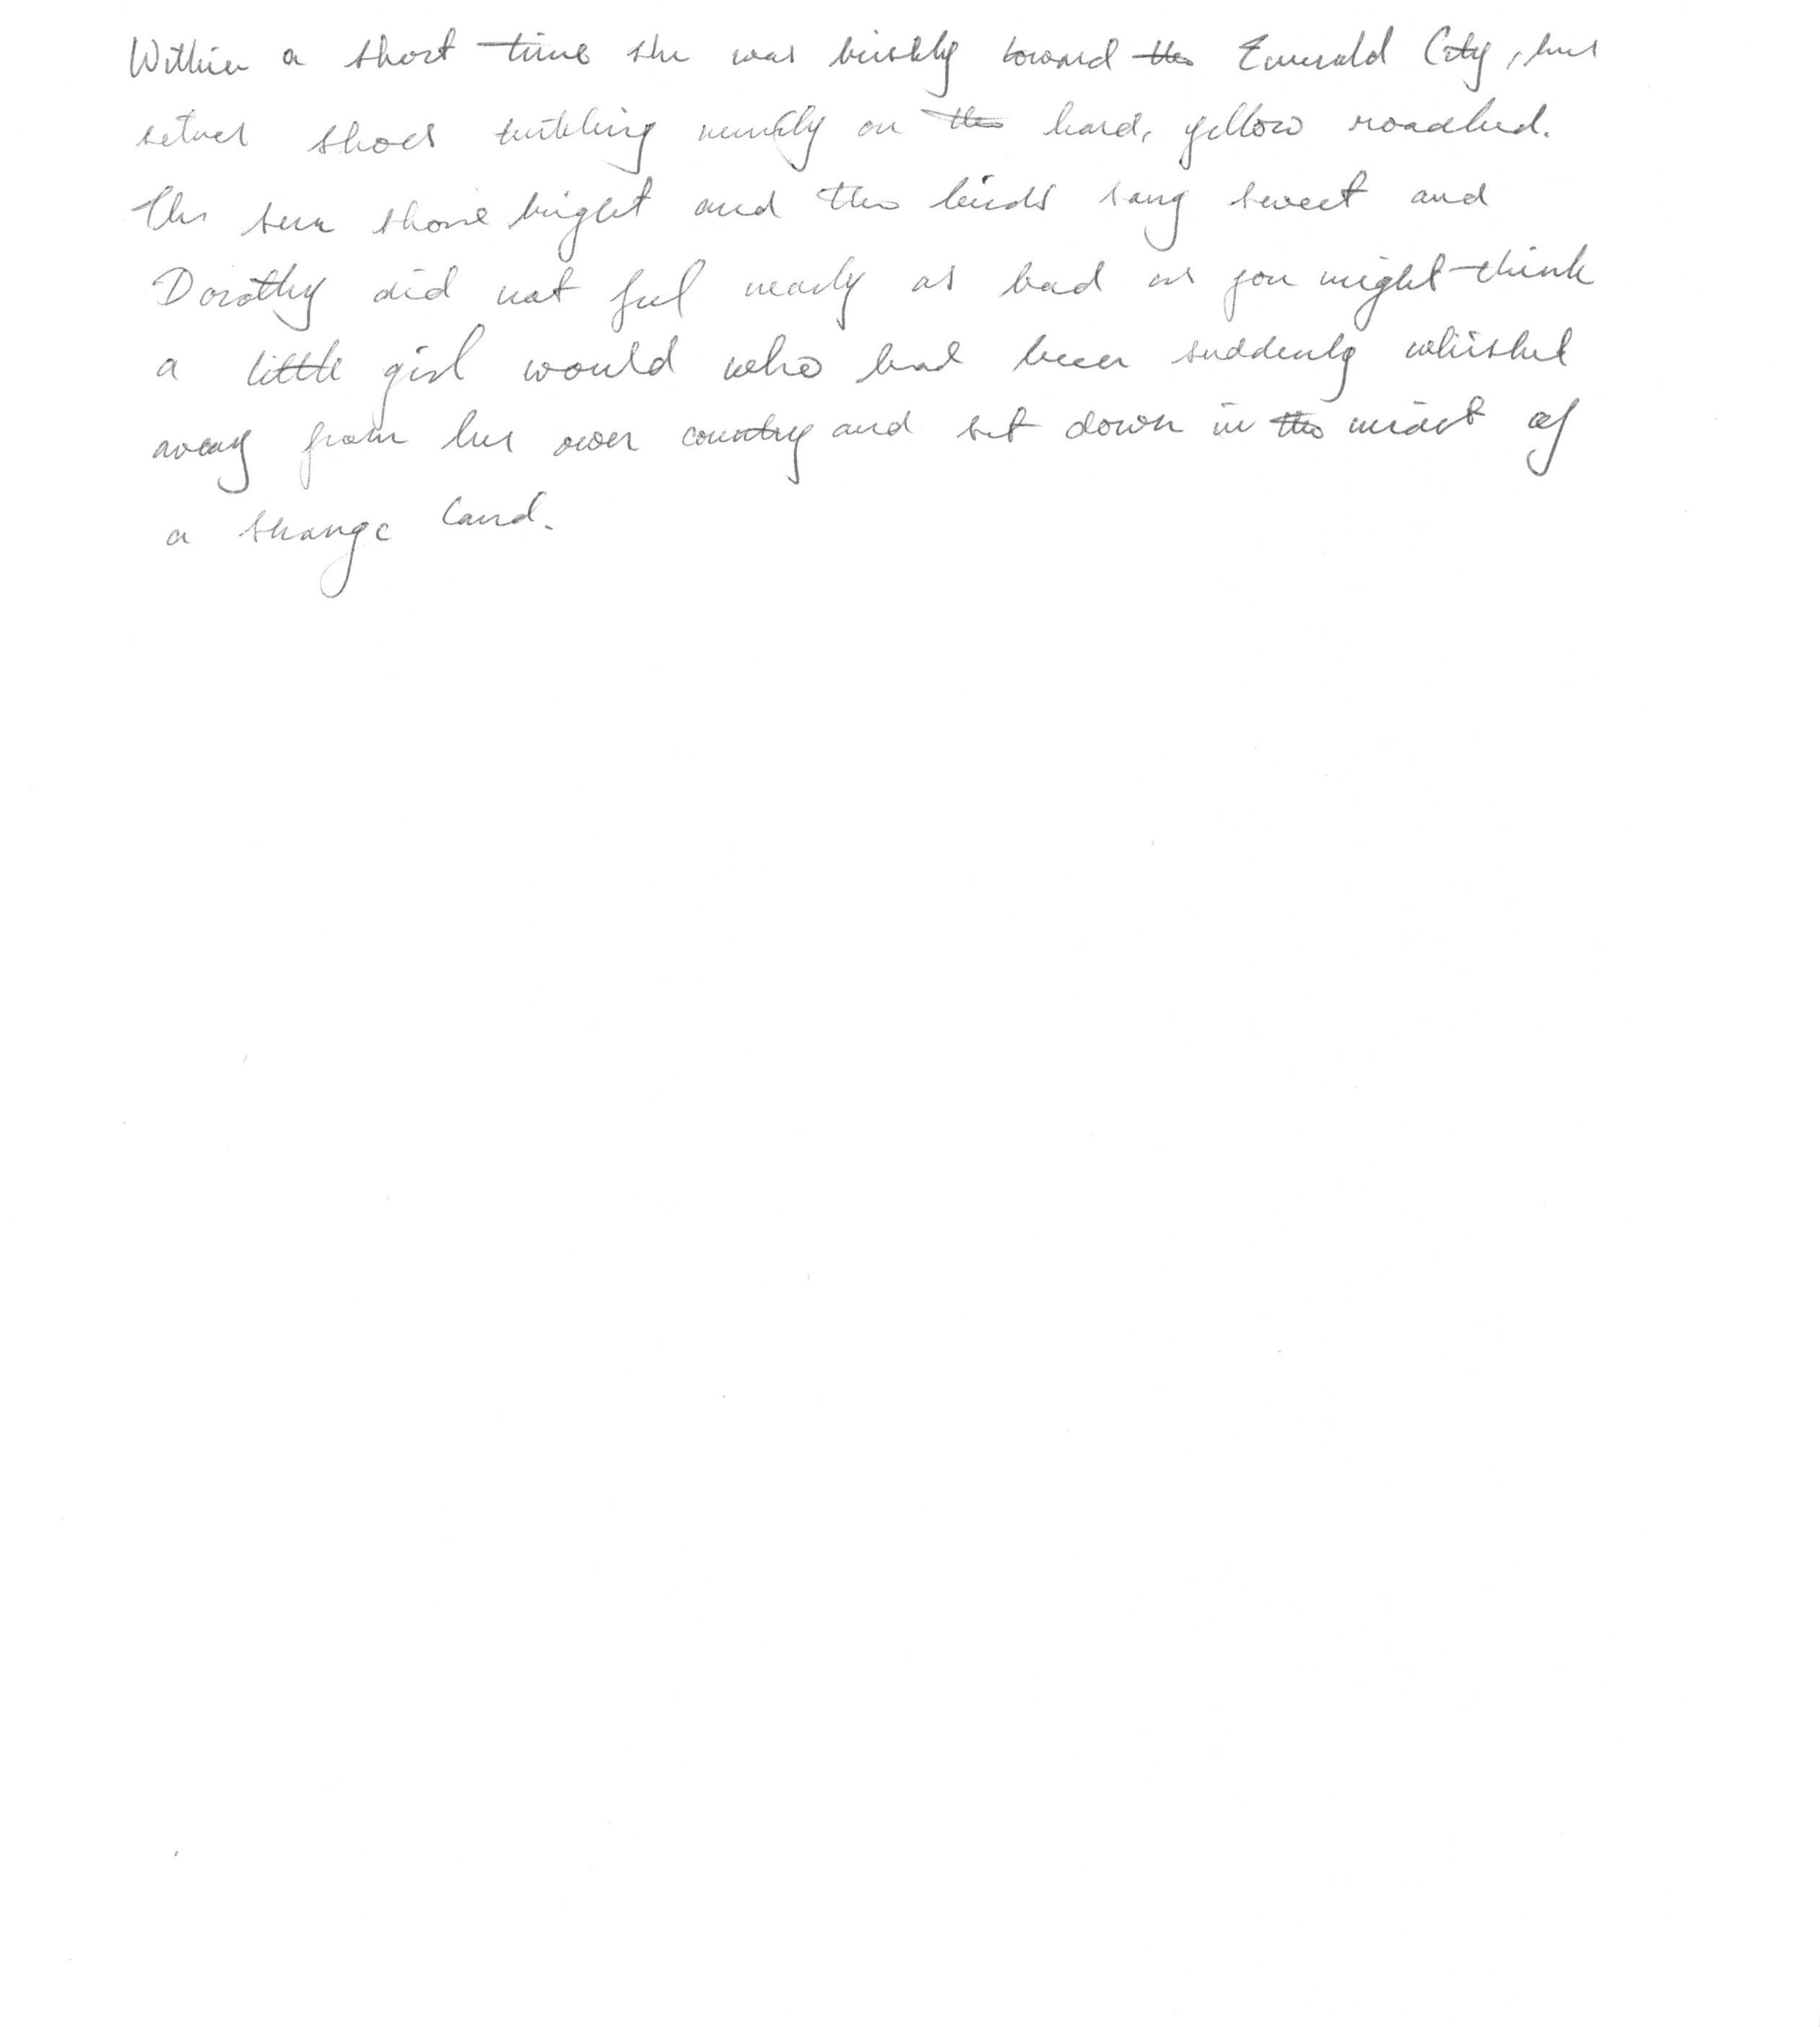 Within a short time she was briskly toward the Emerald City, her
silver shoes tinkling merrily on the hard, yellow roadbed.
The sun shone bright and the birds sang sweet and
Dorothy did not feel nearly as bad as you might think
a little girl would who had been suddenly whisked
away from her own country and set down in the midst of
a strange land.